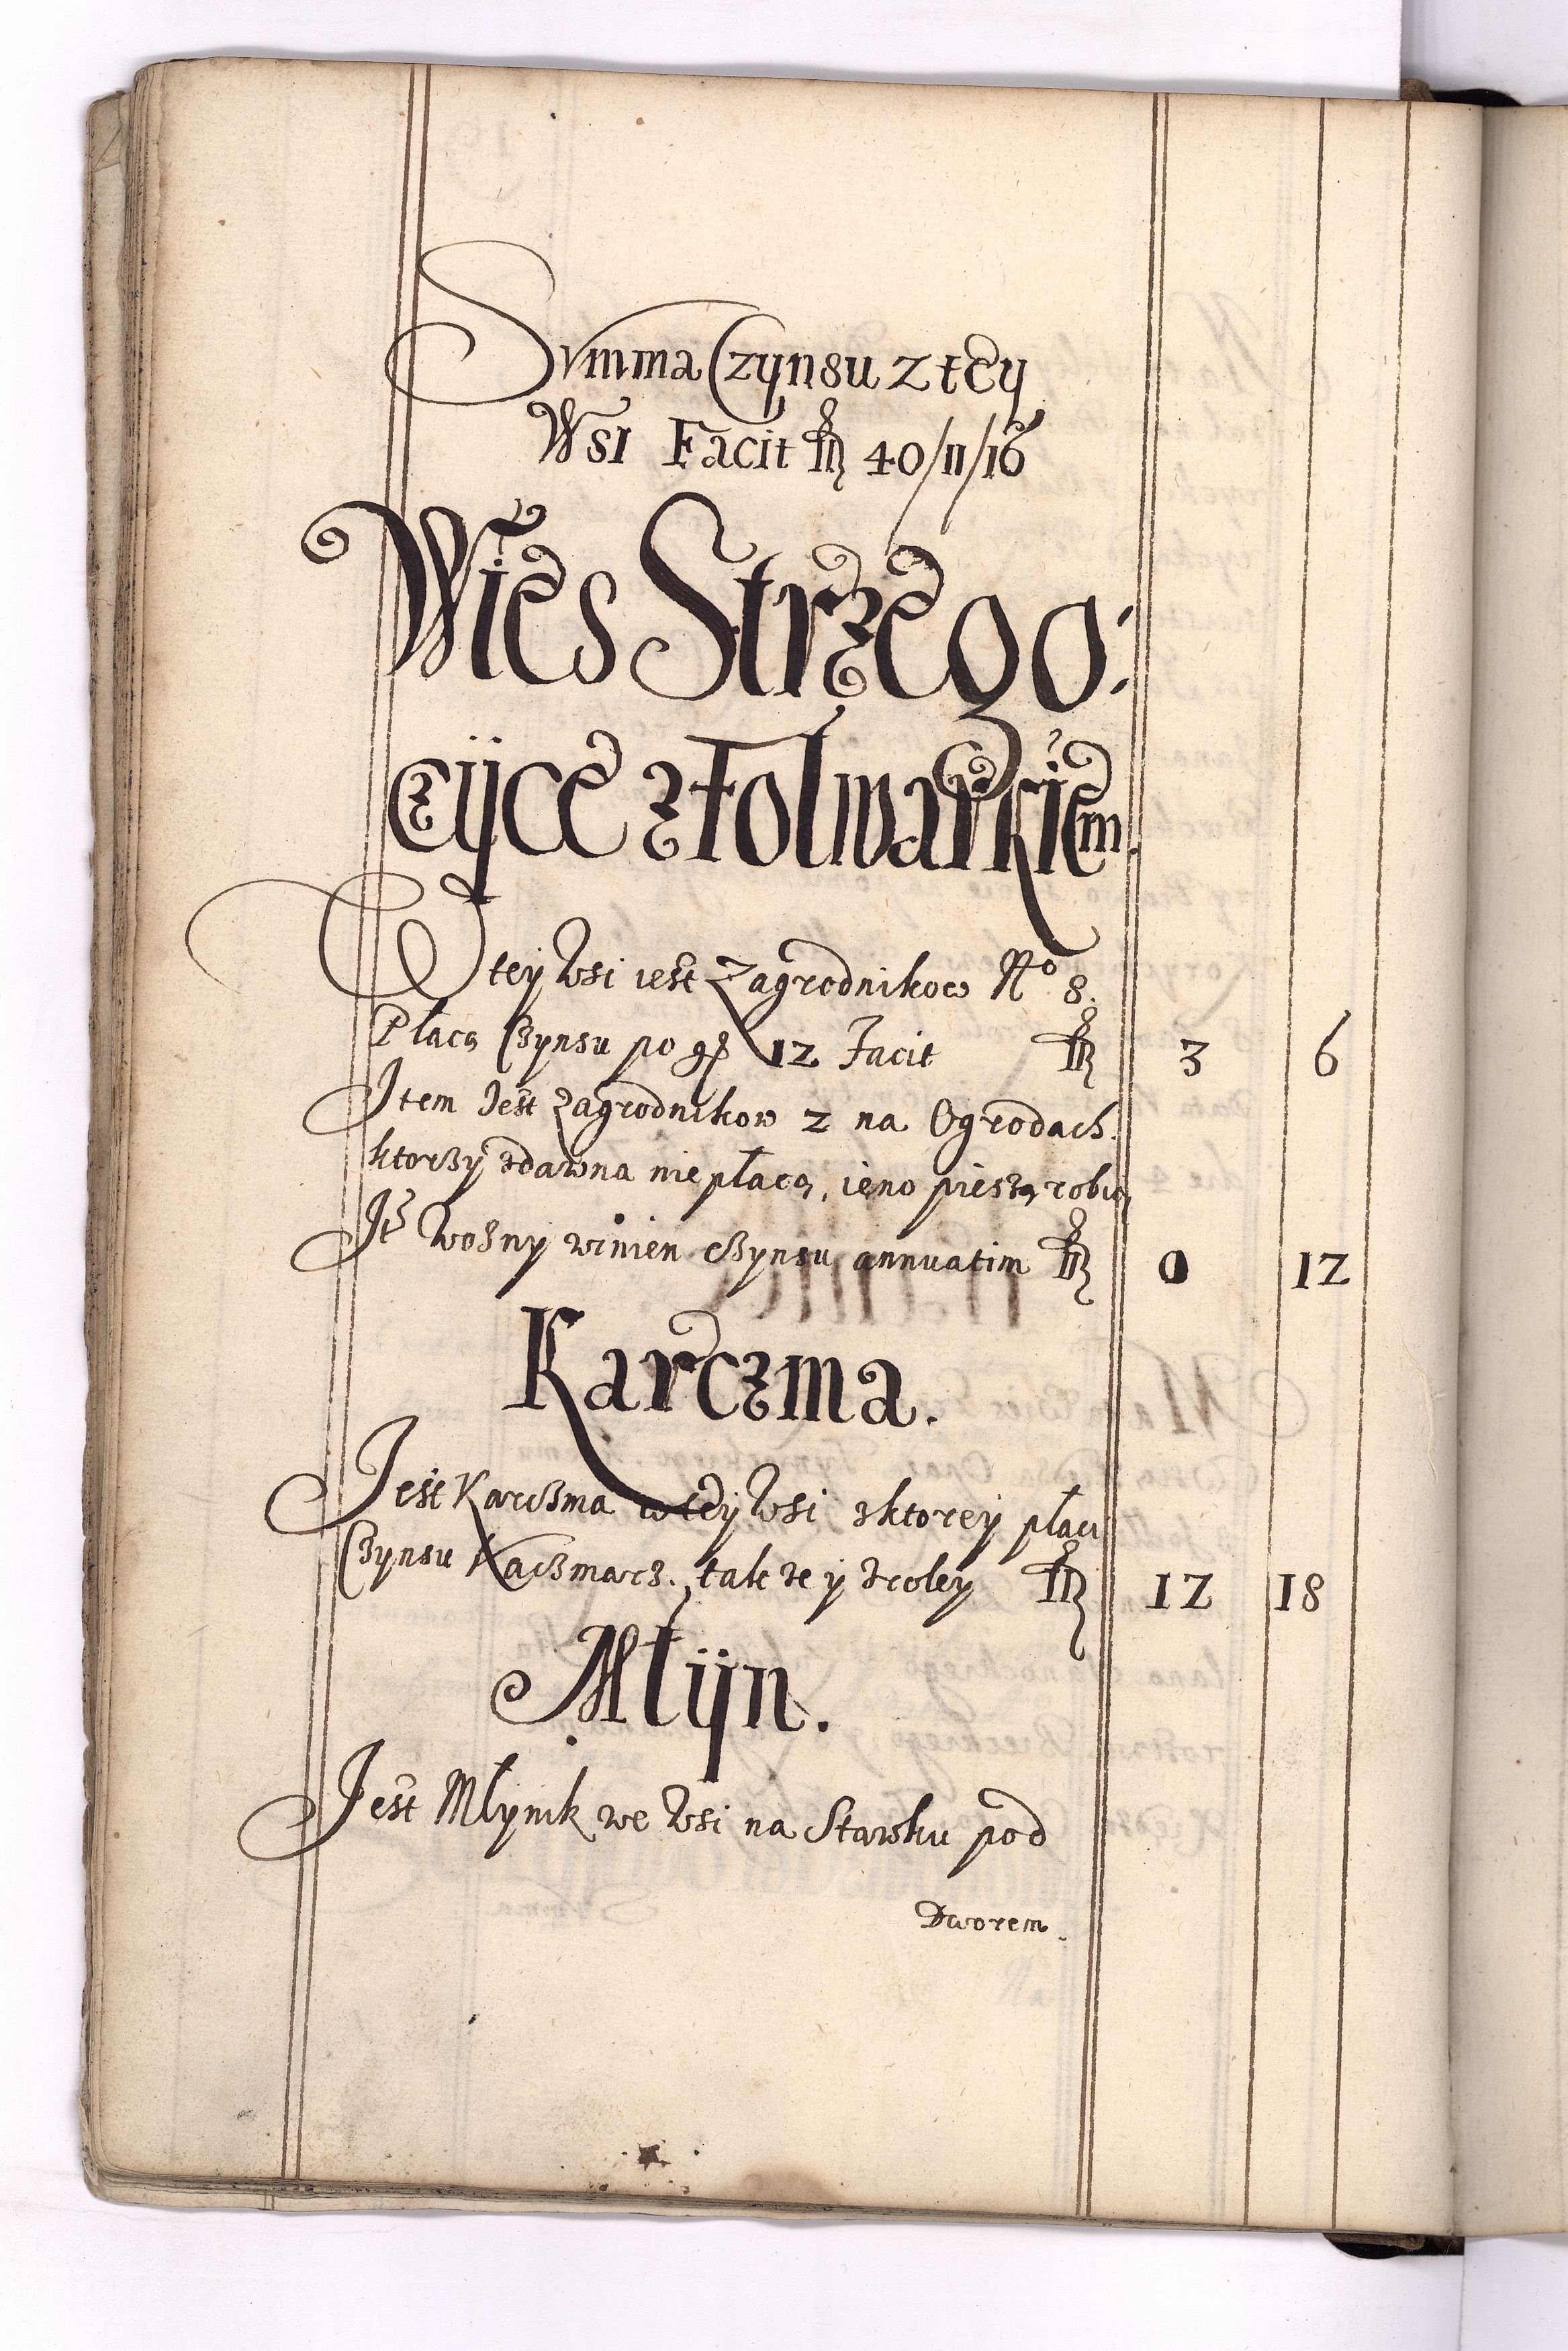 Summa Czynsu z tey
Wsi Facit fl 40/11/16
Wies Strzego:
czyce z Folwarkiem.
W tey Wsi iest Zagrodnikow No 8.
Płacą Czynsu po gr 12 Facit fl 3 6
Item Jest Zagrodnikow 2 na Ogrodach
ktorzy zdawna nie płacą, ieno pieszą robią
Ite Wozny winien Czynsu annuatim fl 0 12
Karczma.
Jest Karczma w tey Wsi z ktorey płaci
Czynsu Kaczmarz, tak ze y z roley fl 12 18
Młyn.
Jest Młynik we Wsi na Stawku pod
Dworem.